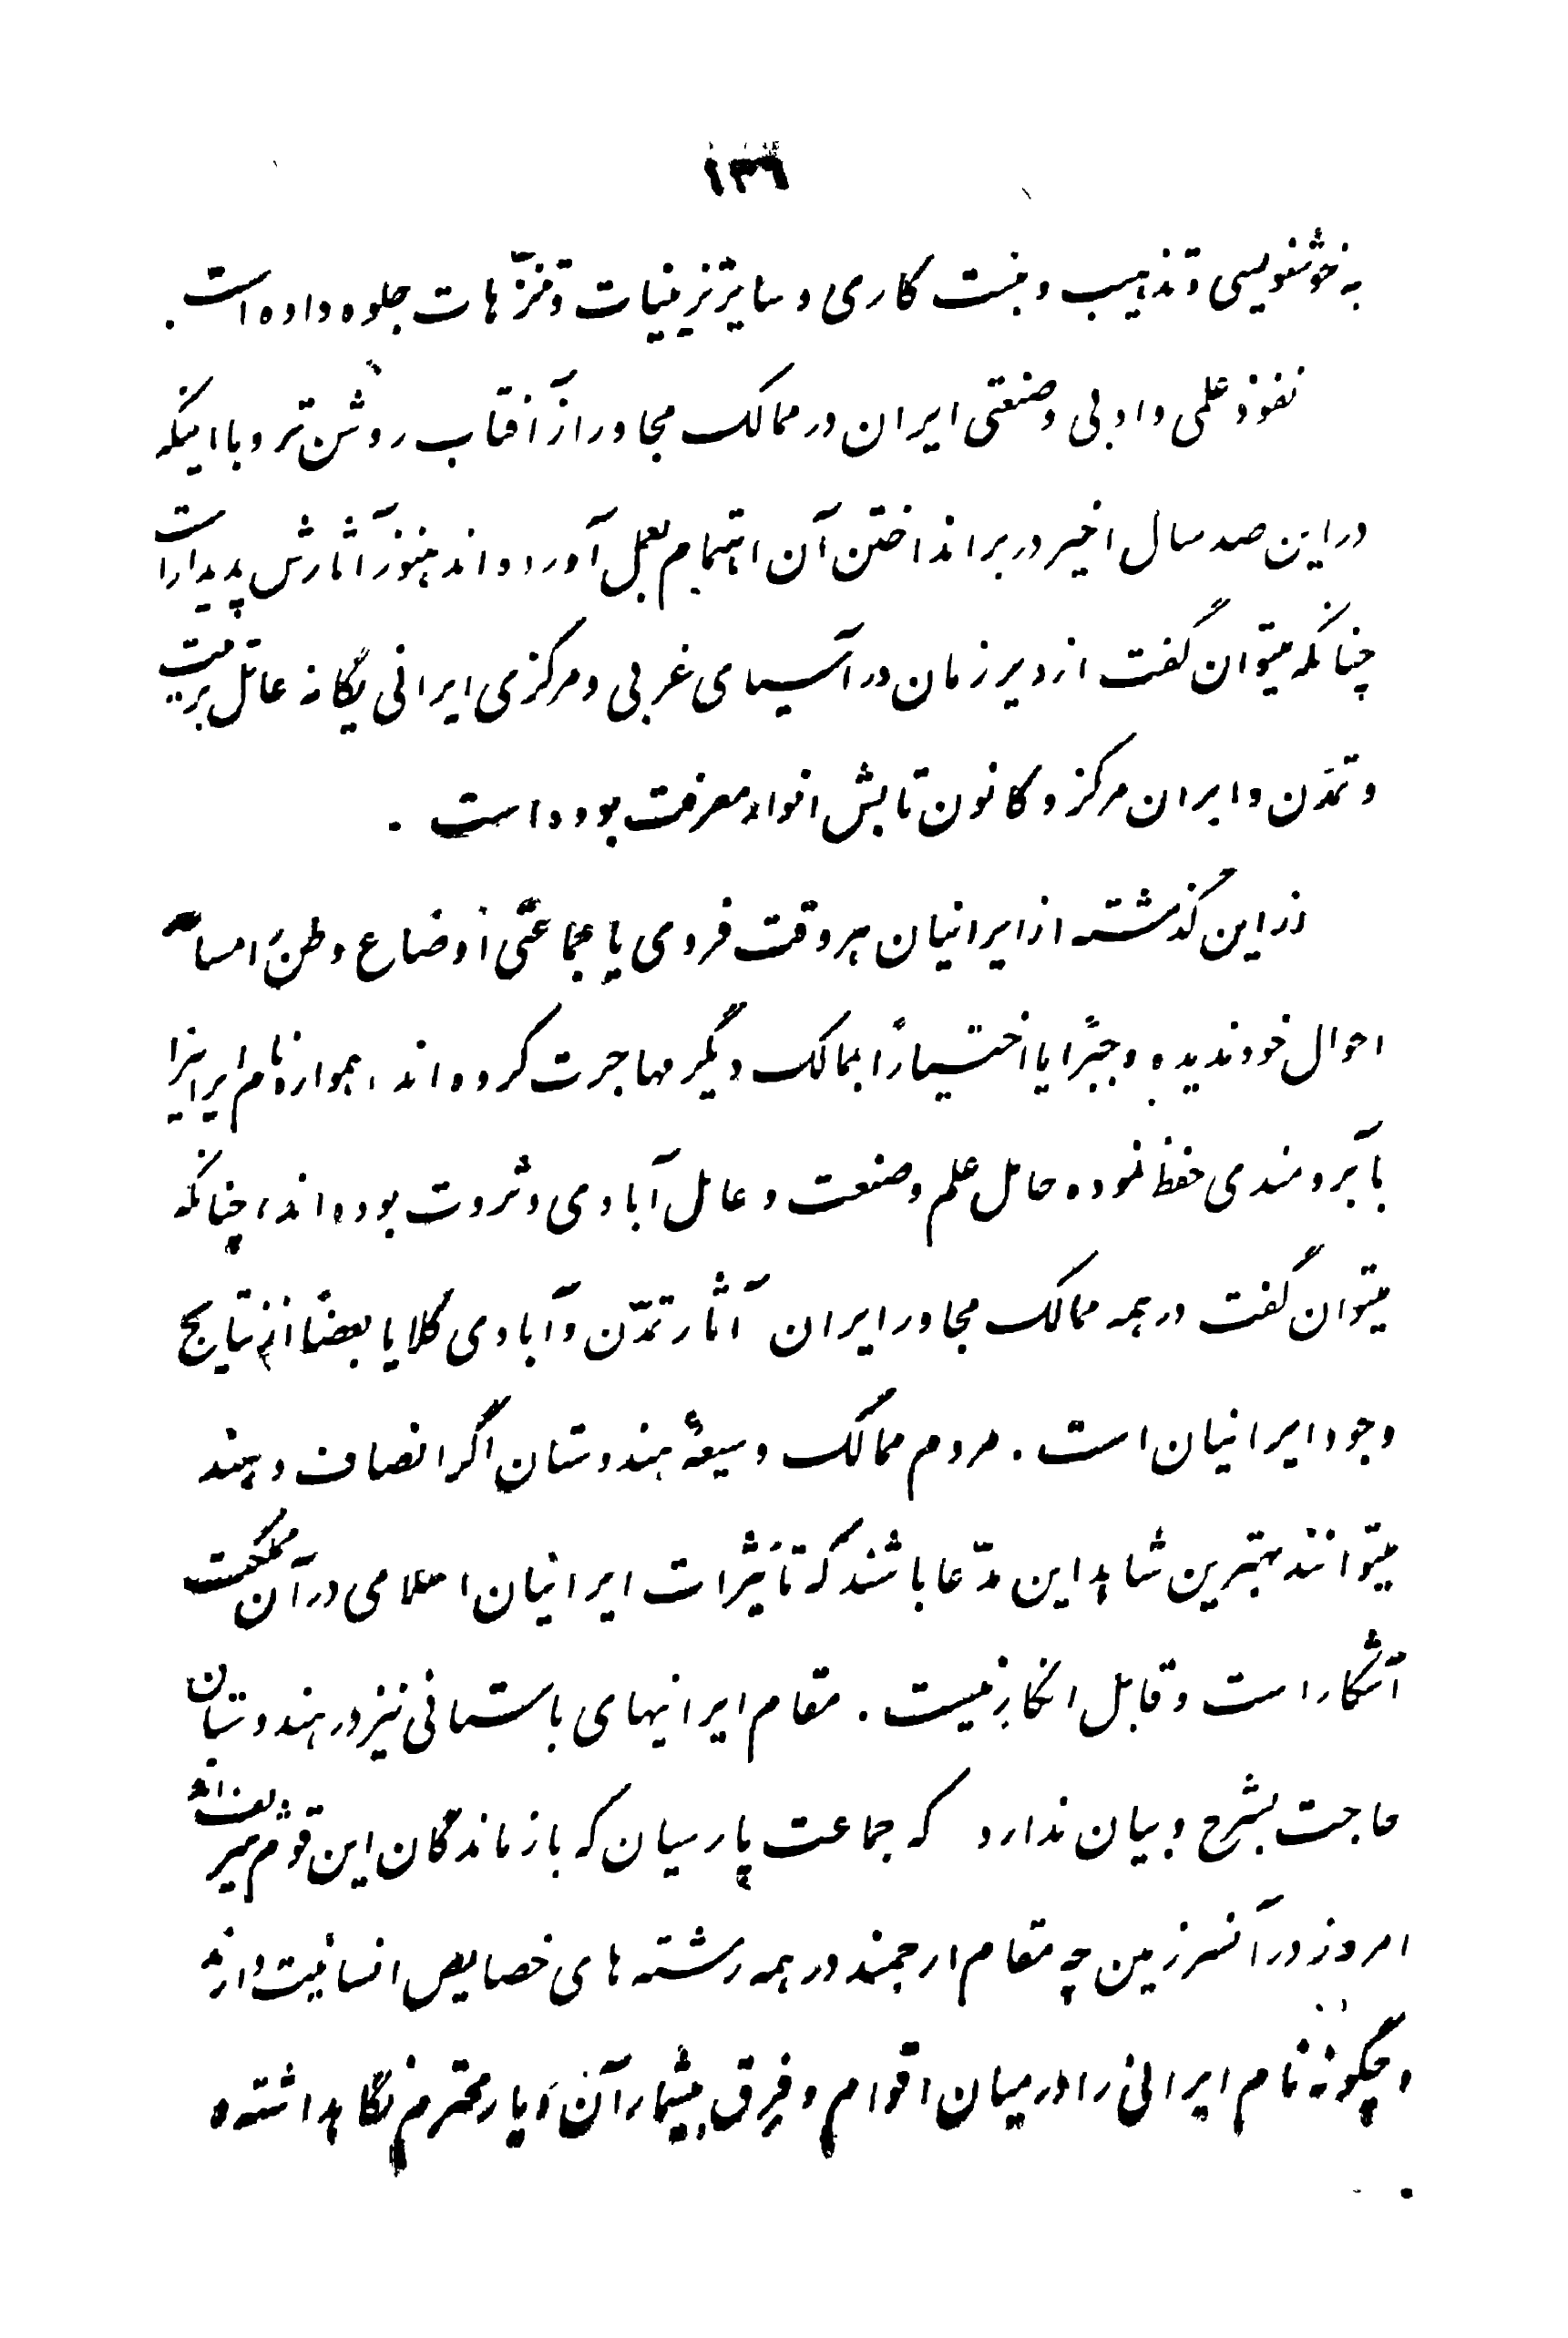 ١٣٦
به خوشنویسی و تذهیب و منبت کاری و سایر تزیینات و تنزّهات جلوه داده است.
نفوذ علمی و ادبی و صنعتی ایران در ممالک مجاور از آفتاب روشن تر و با اینکه
در این صد سال اخیر در برانداختن آن اهتمام بعمل آورده اند هنوز آثارش پدیدار است
چنانکه میتوان گفت از دیر زمان در آسیای غربی و مرکزی ایرانی یگانه عامل تربیت
و تمدّن و ایران مرکز و کانون تابش انوار معرفت بوده است .
از این گذشته از ایرانیان هر وقت فردی یا جماعتی اوضاع وطن را مساعد
احوال خود ندیده و جبراً یا اختیاراً بممالک دیگر مهاجرت کرده اند، همواره نام ایرانرا
با آبرومندی حفظ نموده حامل علم و صنعت و عامل آبادی و ثروت بوده اند، چنانکه
میتوان گفت در همه ممالک مجاور ایران آثار تمدّن و آبادی کلا یا بعضاً از نتایج
وجود ایرانیان است . مردم ممالک وسیعهٔ هندوستان اگر انصاف دهند
میتوانند بهترین شاهد این مدّعا باشند که تأثیرات ایرانیان اسلامی در آن مملکت
آشکار است و قابل انکار نیست . مقام ایرانیهای باستانی نیز در هندوستان
حاجت بشرح و بیان ندارد که جماعت پارسیان که بازماندگان این قوم شریف اند
امروز در آنسرزمین چه مقام ارجمند در همه رشته های خصایص انسانیت دارند
و چگونه نام ایرانی را در میان اقوام و فرق بیشمار آن دیار محترم نگاهداشته